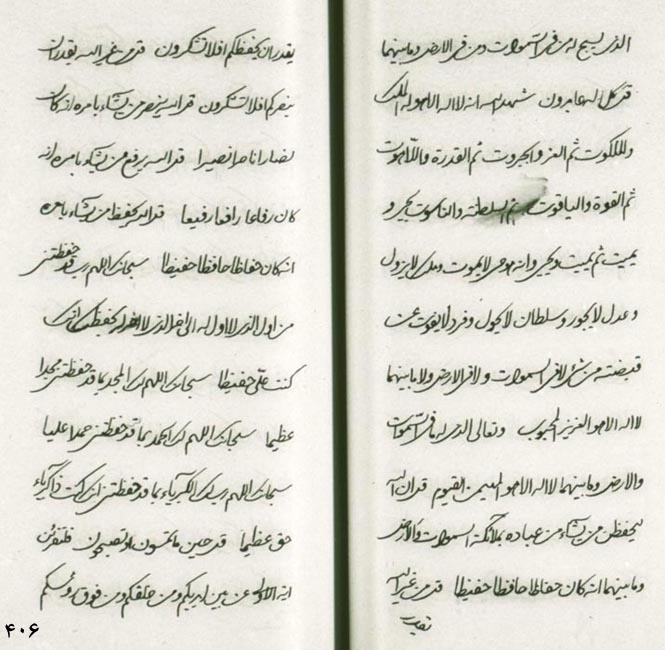 الذی یسبح له من فی السموات ومن فی الارض وما بینهما
قل کل له عابدون شهد الله انه لا اله الا هو له الملک
والملکوت ثم العز والجبروت ثم القدرة واللاهوت
ثم القوة والیاقوت ثم السلطنة والناسوت یحیی و
یمیت ثم یمیت ویحیی وانه هو حی لا یموت وملک لا یزول
وعدل لا یجور وسلطان لا یحول وفرد لا یفوت عن
قبضته من شیء لا فی السموات ولا فی الارض ولا ما بینهما
لا اله الا هو العزیز المحبوب وتعالی الذی له ما فی السموات
والارض وما بینهما لا اله الا هو المهیمن القیوم قل ان الله
لیحفظن من یشاء من عباده بملائکة السموات والارض
وما بینهما انه کان حفاظا حافظا حفیظا قل من غیر الله
یقدر
یقدر ان یحفظکم افلا تشکرون قل من غیر الله یقدر ان
ینصرکم افلا تشکرون قل الله ینصر من یشاء بامره انه کان
نصارا ناصرا نصیرا قل الله یرفع من یشاء بامره انه
کان رفاعا رافعا رفیعا قل الله یحفظ من یشاء بامره
انه کان حفاظا حافظا حفیظا سبحانک اللهم رب قد حفظتنی
من اول الذی لا اول له الی اخر الذی لا اخر له بحفظک انک
کنت علی حفیظا سبحانک اللهم لک المجد بما قد حفظتنی مجدا
عظیما سبحانک اللهم لک الحمد بما قد حفظتنی حمدا علیا
سبحانک اللهم ربی لک الکبریاء بما قد حفظتنی انک کنت ذا کبریاء
حق عظیما قل حین ما تمسون او تصبحون فلتقرئن
ایة الاولی عن بین ایدیکم ومن خلفکم ومن فوق رؤسکم
۴۰۶